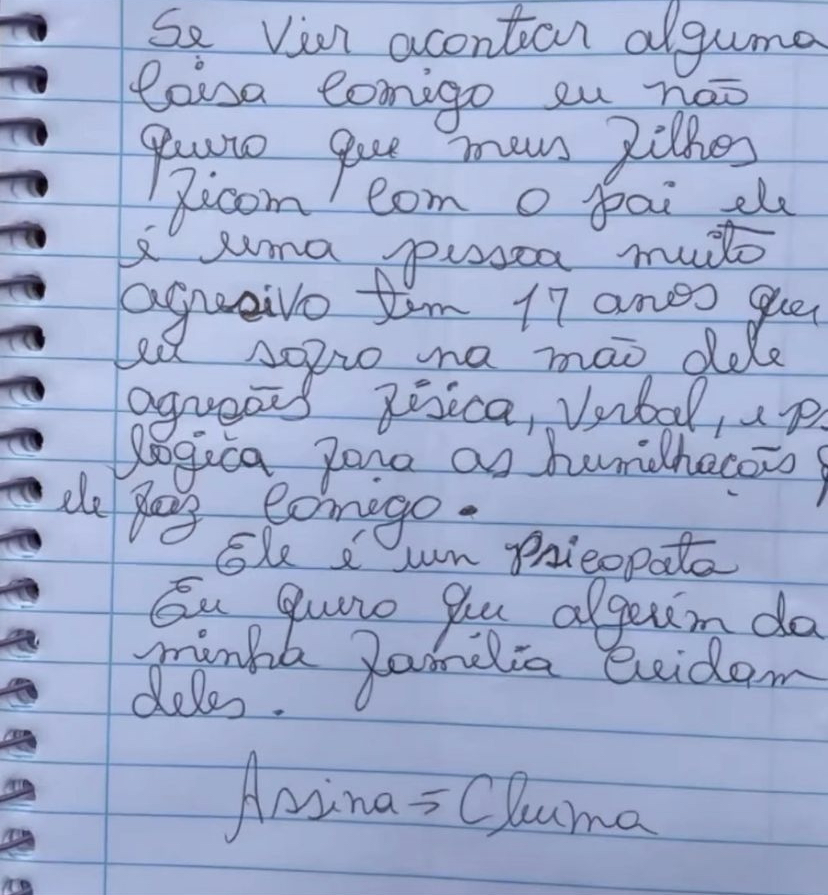 Se vier acontecer alguma
Coisa Comigo eu não
quero que meus filhos
ficam com o pai ele
é uma pessoa muito
agresivo tem 17 anos que
eu sofro na mão dele
agreções física, verbal, e ps
lógica fora as humilhações q
ele faz comigo.
Ele é um psicopata
Eu quero que alguém da
minha família cuidam
deles.
Assina =